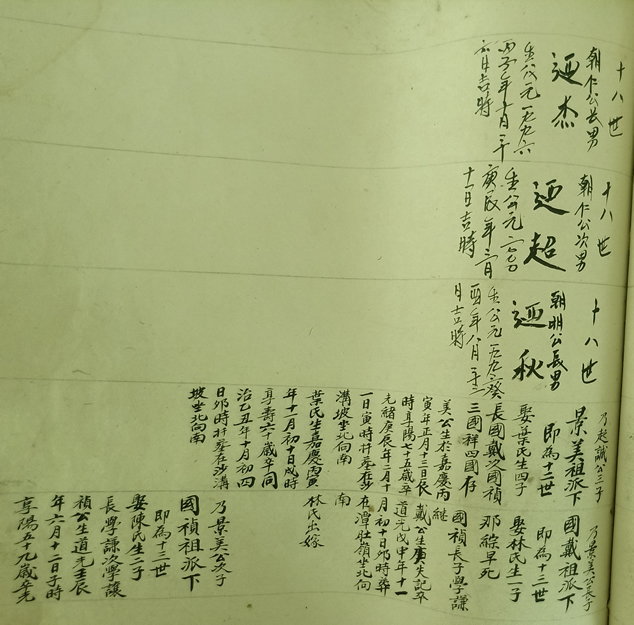 十八世
朝仁公長男
迊杰
生公元一九九六
丙子年十月二十
六日吉時
十八世
朝仁公次男
迊超
生公元二〇〇〇
庚辰年二月
十一日吉時
十八世
朝明公長男
迊秋
生公元一九九
酉年八月二十二
日吉時
乃起誠公三子
景美祖派下
即為十二世
娶葉氏生四子
長國戴次國禎
三國祥四國存
美公生於嘉慶丙
寅年正月十三日辰
時享陽七十五歲卒
光緒庚辰年二月十
一日寅時扦墓在沙
溝坡坐北向南
葉氏生嘉慶丙寅
年十一月初十日戌時
享壽六十歲卒同
治乙丑年十月初四
日卯時扦墓在沙溝
坡坐北向南
乃景美公長子
國戴祖派下
即為十三世
娶林氏生一子
那綜早死
國禎長子學謙
繼
戴公生庚失記卒
道光戊申年十一
月初十日卯時葬
在潭肚嶺坐北向
南
林氏出嫁
乃景美公次子
國禎祖派下
即為十三世
娶陳氏生二子
長學謙次學讓
禎公生道光壬辰
年六月十二日子時
享陽五十九歲卒光